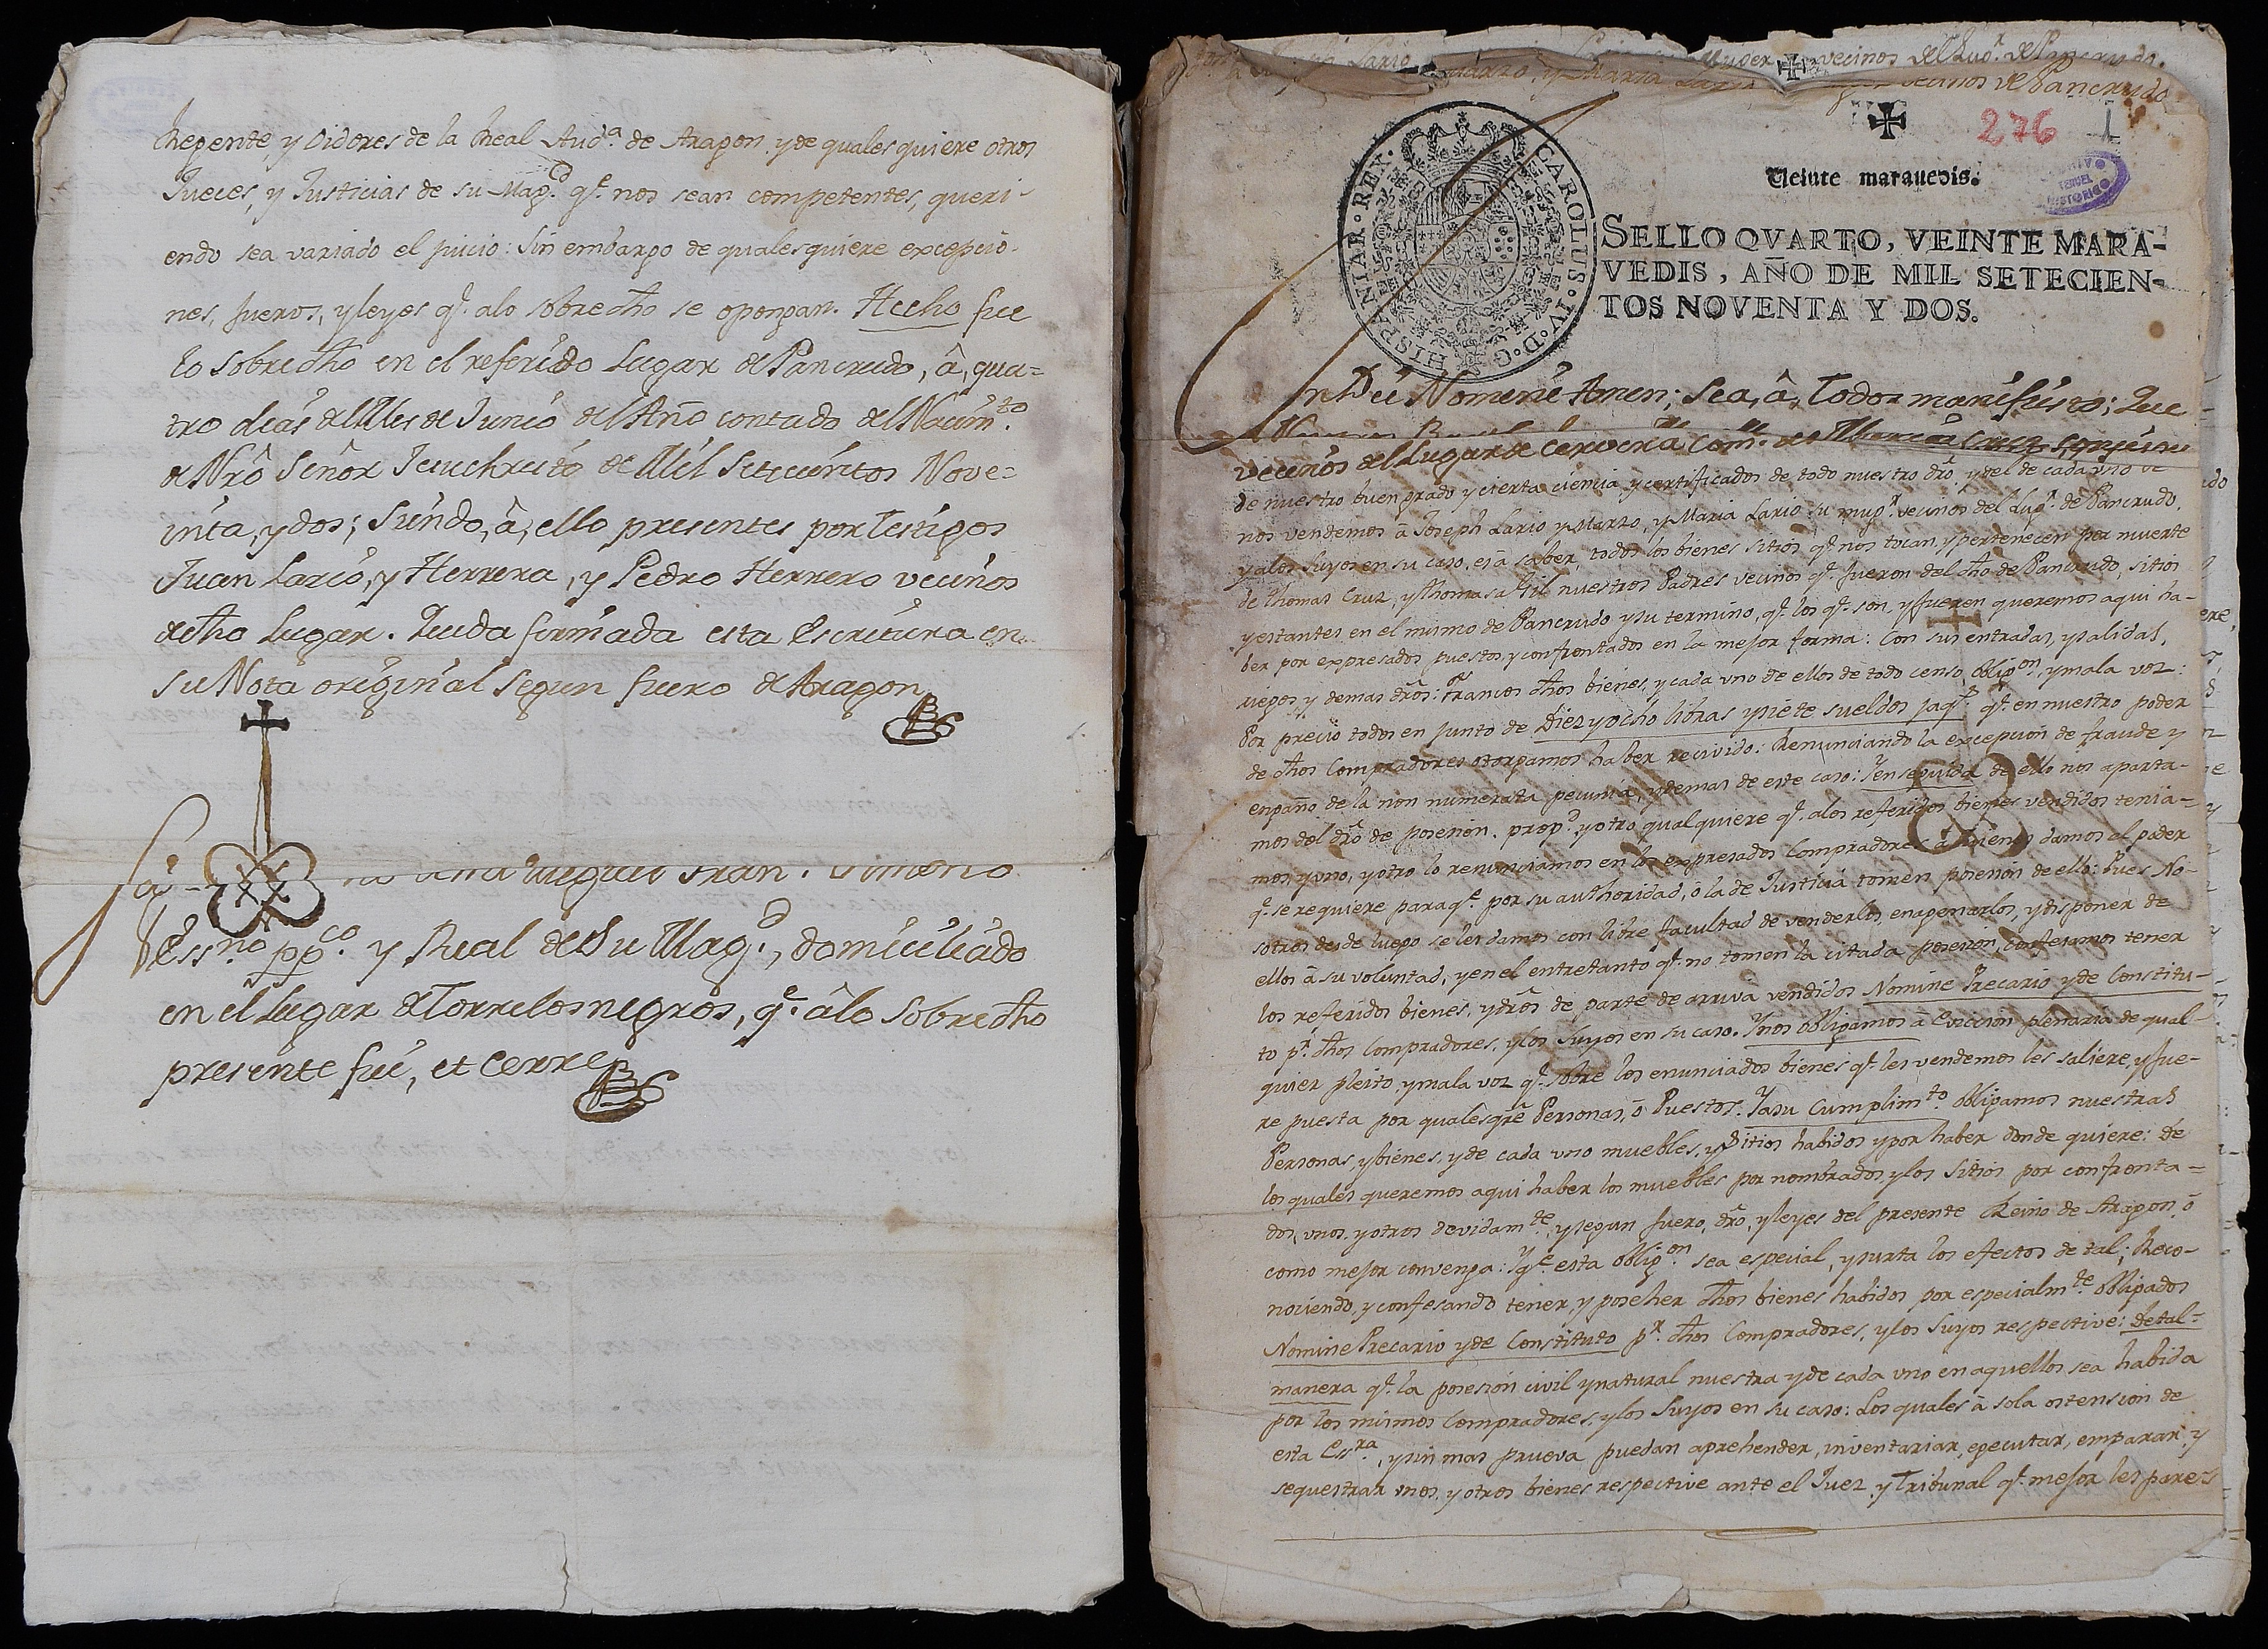 Regente, y Oidores de la Real Aud.a de Aragon, y de quales quiere otros
Jueces, y Justicias de su Mag.d q.e nos sean competentes, queri-
endo sea variado el juicio: Sin embargo de qualesquiere excepcio-
nes, fueros, y leyes q.e alo sobredho se opongan. Hecho fue
lo sobredho en el referido Lugar de Pancrudo, â, qua=
tro dias del Mes de Junio del Año contado del Nacim.to
de Nrô Señor Jesuchristo de Mil Setecientos Nove=
inta, y dos; Siendo, â, ello presentes por Testigos
Juan Lario, y Herrera, y Pedro Herrero vecinos
de dho Lugar. Queda firmada esta Escritura en
su Nota original segun fuero de Aragon
Ess.no pp.co y Real de Su Mag.d, domiciliado
en el Lugar de Torrelosnegros, q.e âlo sobredho
presente fui, et cerre
vecinos del Lug.r de Pancrudo.
y Maria vecinos de Pancrudo
276 1
Veinte marauedis.
TERUEL
HISTORICO
CAROLUS · IV · D · G · HISPANIAR · REX ·
SELLO QVARTO, VEINTE MARA-
VEDIS, AÑO DE MIL SETECIEN-
TOS NOVENTA Y DOS.
In Dei Nomine Amen; Sea, â, Todos manifiesto; Que
vecinos del Lugar de Cervera
de nuestro buen grado y cierta ciencia, y certificados de todo nuestro drô, y del de cada uno de
nos vendemos â Joseph Lario y Marzo, y Maria Lario su mug.r vecinos del Lug.r de Pancrudo,
y alos suyos en su caso, es â saber, todos los bienes sitios q.e nos tocan, y pertenecen por muerte
de Thomas Cruz, y Thomasa Gil nuestros Padres vecinos q.e fueron del dho de Pancrudo, sitios
y estantes en el mismo de Pancrudo y su termino, q.e los q.e son, y fueren queremos aqui ha-
ber por expresados, puestos, y confrontados en la mejor forma: Con sus entradas, y salidas,
riegos y demas drôs: Francos dhos bienes, y cada uno de ellos de todo censo, oblig.on, y mala voz:
Por precio todos en junto de Diez y ocho libras y siete sueldos jaq.s q.e en nuestro poder
de dhos Compradores otorgamos haber recivido: Renunciando la excepcion de fraude y
engaño de la non numerata pecunia, y demas de este caso: Y en seguida de ello nos aparta-
mos del drô de posesion, prop.d y otro qualquiere q.e alos referidos bienes vendidos tenia=
mos, y uno, y otro lo renunciamos en los expresados Compradores â quienes damos el poder
q.e se requiere para q.e por su authoridad, ô la de Justicia tomen posesion de ello: Pues No-
sotros desde luego se les damos con libre facultad de venderlos, enagenarlos, y disponer de
ellos â su voluntad, y en el entretanto q.e no tomen la citada posesion, confesamos tener
los referidos bienes, y drôs de parte de arriva vendidos Nomine Precario y de Constitu-
to p.r dhos Compradores, y los Suyos en su caso. Y nos obligamos â Eviccion plenaria de qual-
quier pleito, y mala voz q.e sobre los enunciados bienes q.e les vendemos les saliere, y fue-
re puesta por qualesqre Personas, ô Puestos. Y asu cumplim.to obligamos nuestras
Personas, y bienes, y de cada uno muebles, y Sitios habidos y por haber donde quiere: De
los quales queremos aqui haber los muebles por nombrados, y los Sitios por confronta=
dos, unos, y otros devidam.te, y segun fuero, drô, y leyes del presente Reino de Aragon, ô
como mejor convenga: Y q.e esta oblig.on sea especial, y surta los efectos de tal; Reco-
nociendo, y confesando tener, y poseher dhos bienes habidos por especialm.te obligados
Nomine Precario y de Constituto p.r dhos Compradores, y los Suyos respective: De tal=
manera q.e la posesion civil y natural nuestra y de cada uno en aquellos sea habida
por los mismos Compradores, y los Suyos en su caso: Los quales â sola ostension de
esta Ess.ra, y sin mas prueva puedan aprehender, inventariar, egecutar, emparar, y
sequestrar unos, y otros bienes respective ante el Juez, y Tribunal q.e mejor les parez